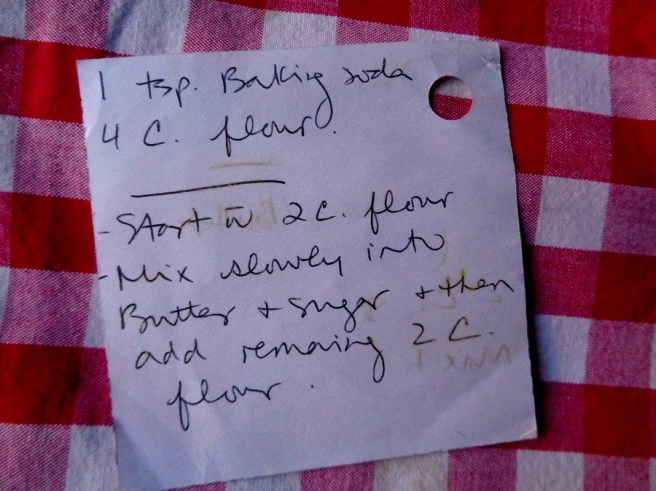 1 tsp. Baking soda
4 C. flour.
- Start w 2 C. flour
- Mix slowly into
Butter + sugar + then
add remaing 2 C.
flour.